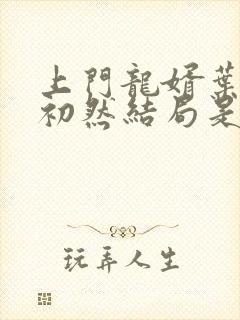 上門龍婿葉
初然結局是
玩弄人生